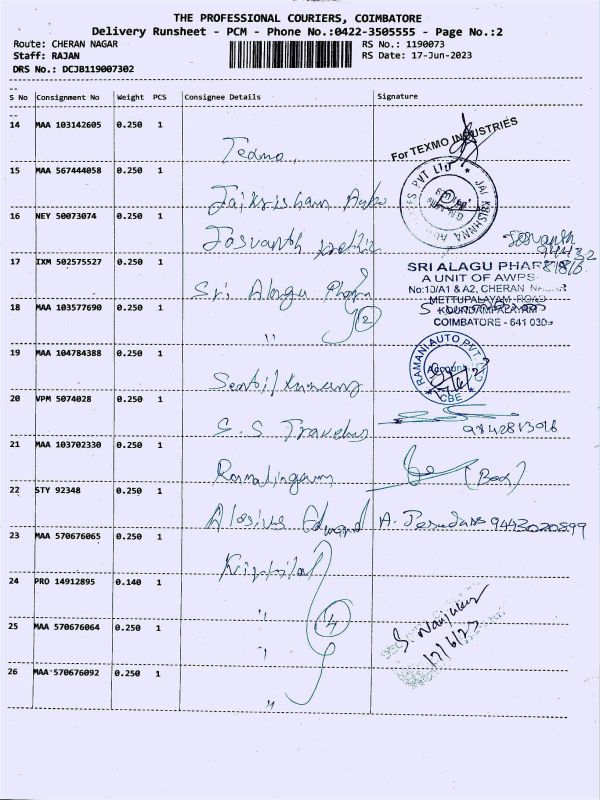 THE PROFESSIONAL COURIERS, COIMBATORE
Delivery Runsheet - PCM - Phone No.:0422-3505555 - Page No.:2
Route: CHERAN NAGAR RS No.: 1190073
Staff: RAJAN RS Date: 17-Jun-2023
DRS No.: DCJB119007302
S No Consignment No Weight PCS Consignee Details Signature
14 MAA 103142605 0.250 1 Texmo, For TEXMO INDUSTRIES
15 MAA 567444058 0.250 1 Jaikrishan Auto JAI KRISHNNA PVT LTD
16 NEY 50073074 0.250 1 Josvanth Josvanth
17 IXM 502575527 0.250 1 Sri Alagu Pharm SRI ALAGU PHAR
A UNIT OF AWPS
No:10/A1 & A2, CHERAN NAGAR
METTUPALAYAM ROAD
18 MAA 103577690 0.250 1 " 2 KOUNDAMPALAYAM
COIMBATORE - 641 030
19 MAA 104784388 0.250 1 Sentilkumar RAMANI AUTO PVT LTD CBE
20 VPM 5074028 0.250 1 S.S Travels 9842813016
21 MAA 103702330 0.250 1 Ramalingam (Box)
22 STY 92348 0.250 1 Alosius Edward A. 9443020899
23 MAA 570676065 0.250 1
24 PRO 14912895 0.140 1 " 4
25 MAA 570676064 0.250 1 " 17/6/23
26 MAA 570676092 0.250 1 "